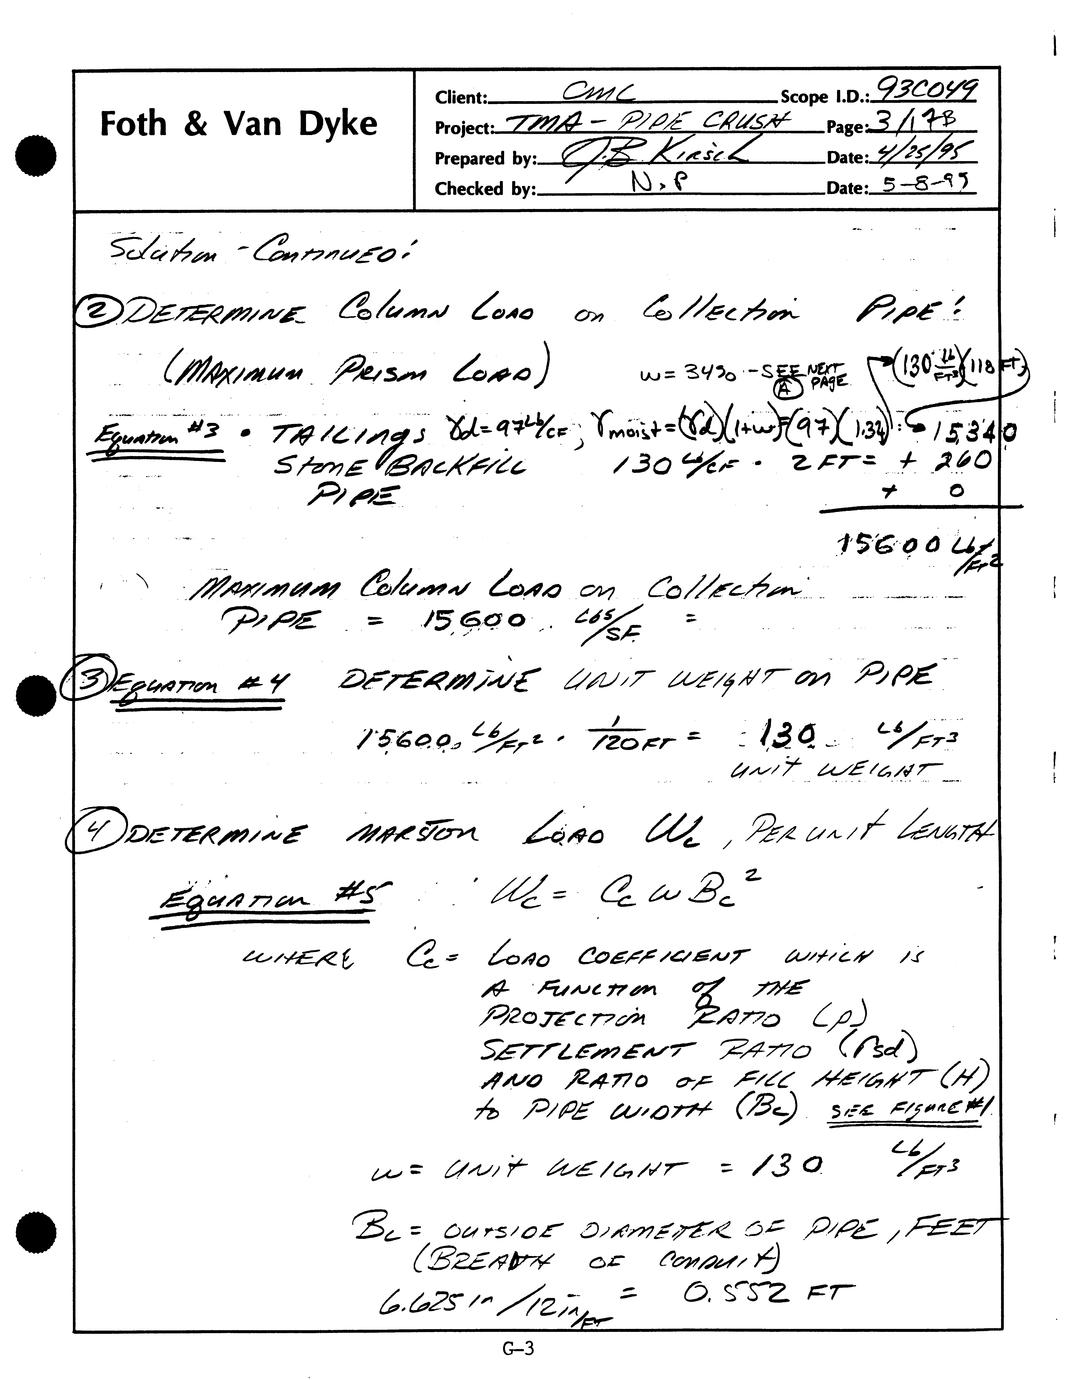 Foth & Van Dyke
Client: CMC Scope I.D.: 93C049
Project: TMA - PIPE CRUSH Page: 3/17B
Prepared by: J.B. Kirsch Date: 4/25/95
Checked by: N.P Date: 5-8-95
Solution - Continued:
② DETERMINE Column LOAD on Collection PIPE:
(MAXIMUM PRISM LOAD) w = 34% - SEE NEXT PAGE Ⓐ (130 Lb/FT³)(118 FT)
Equation #3 • TAILINGS γd = 97 Lb/CF; γmoist = (γd)(1+w) = (97)(1.34) = 15340
STONE BACKFILL 130 Lb/CF • 2 FT = + 260
PIPE + 0
15600 Lb/FT²
MAXIMUM Column LOAD on Collection
PIPE = 15600 Lbs/SF =
③ Equation #4 DETERMINE UNIT WEIGHT on PIPE
15600 Lb/FT² • 1/120FT = 130 Lb/FT³
UNIT WEIGHT
④ DETERMINE MARSTON LOAD Wc, PER UNIT LENGTH
Equation #5 Wc = Cc w Bc²
WHERE Cc = LOAD COEFFICIENT WHICH IS
A FUNCTION of THE
PROJECTION RATIO (p)
SETTLEMENT RATIO (rsd)
AND RATIO OF FILL HEIGHT (H)
to PIPE WIDTH (Bc) SEE FIGURE #1
w = UNIT WEIGHT = 130 Lb/FT³
Bc = OUTSIDE DIAMETER OF PIPE, FEET
(BREADTH OF CONDUIT)
6.625 in / 12 in/FT = 0.552 FT
G-3